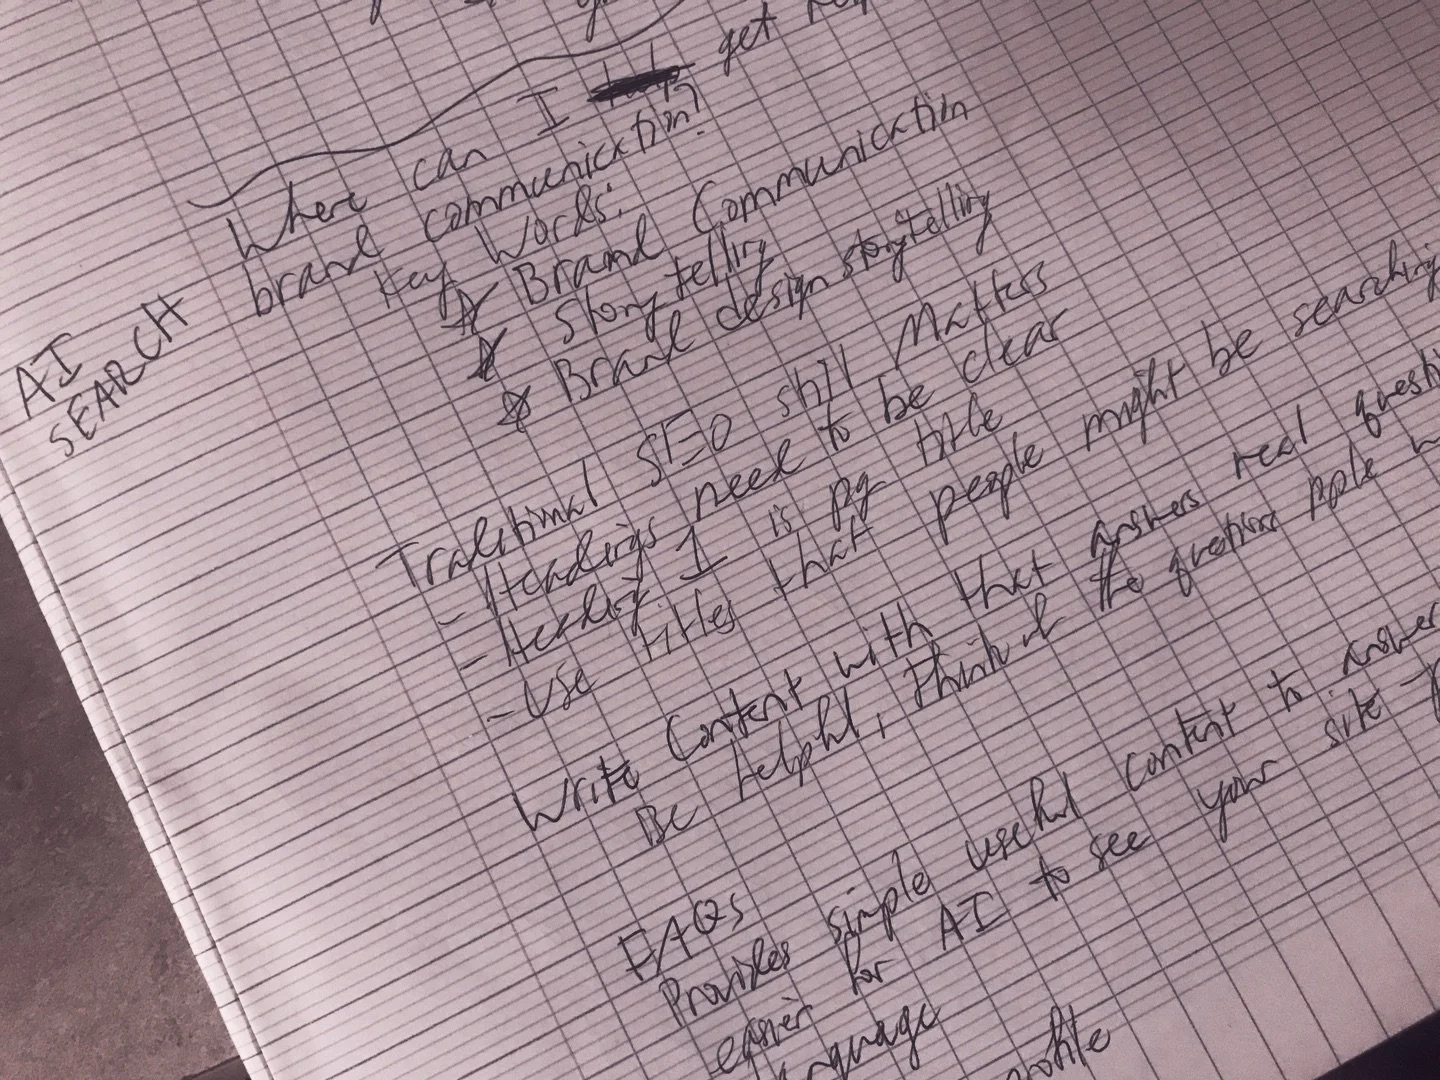 Where can I get
brand communication?
AI
SEARCH
Key Words:
Brand Communication
Story telling
Brand design storytelling
Traditional SEO still Matters
- Headings need to be clear
- Heading 1 is pg title
- Use titles that people might be searching
Write Content with that answers real
Be helpful, think of the questions pple
FAQs
Provides simple useful content to answer
easier for AI to see your site
language
profile